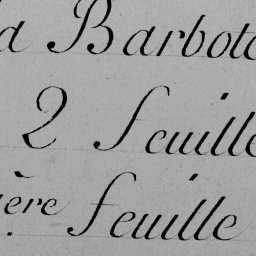 la Barbote
2 feuille
ière feuille